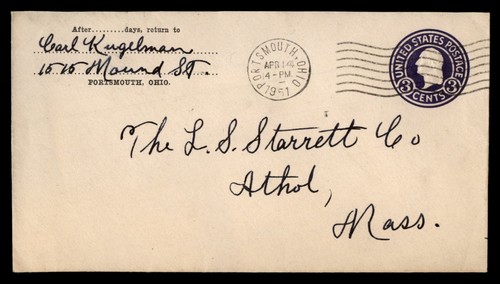 After........days, return to
Carl Kugelman
1515 Mound St.
PORTSMOUTH, OHIO.
PORTSMOUTH, OHIO
APR 14
4-PM
1951
UNITED STATES POSTAGE
3 CENTS 3
The L. S. Starrett Co
Athol,
Mass.